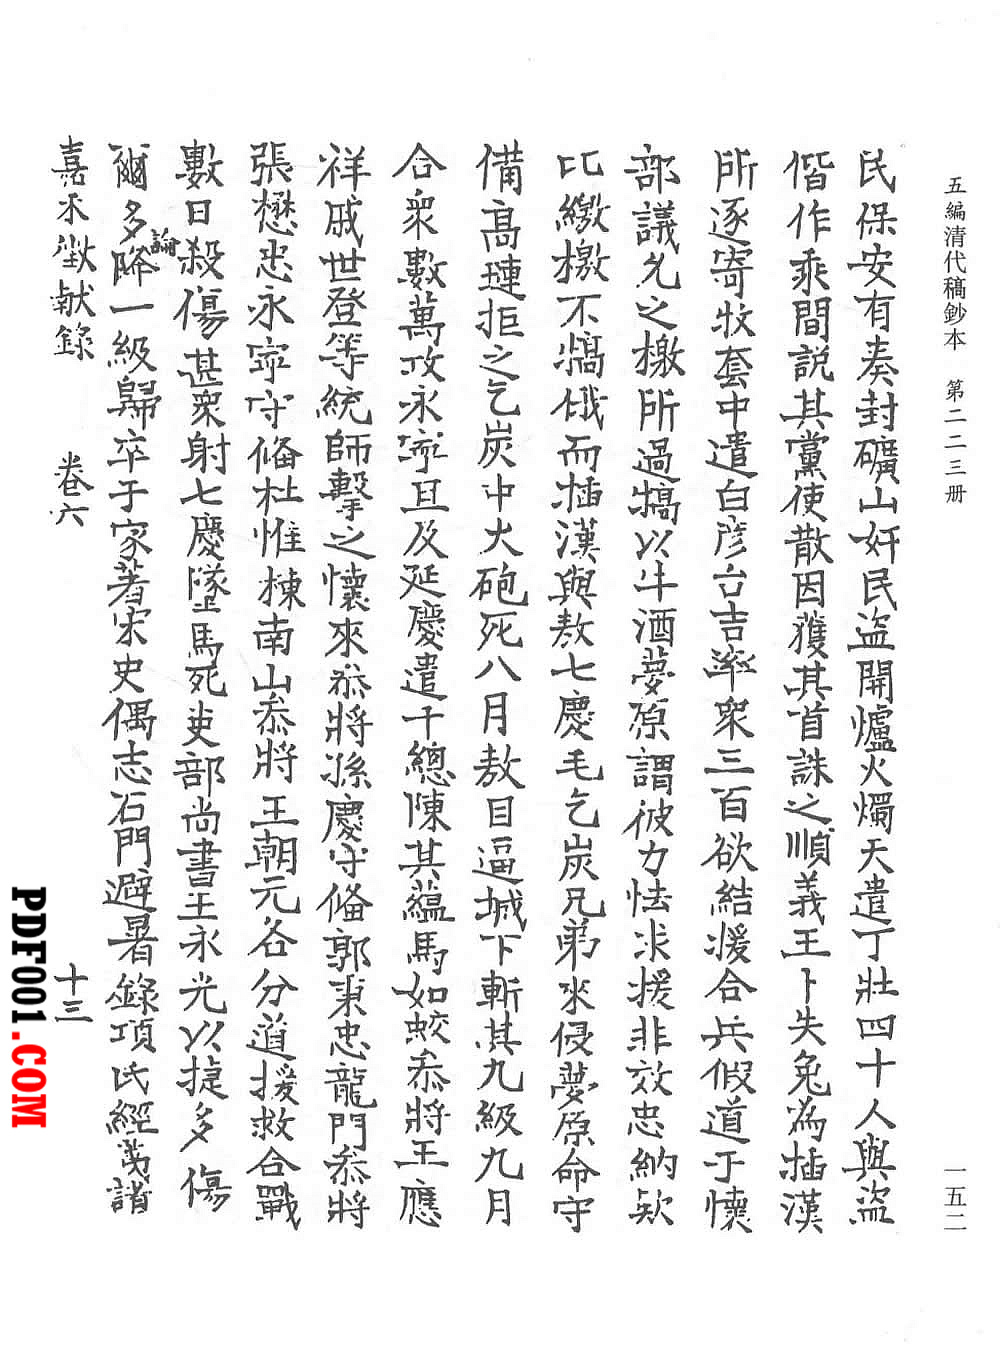 五編清代稿鈔本　第二二三册
一五二
民保安有奏封礦山奸民盜開爐火燭天遣丁壯四十人與盜
偕作乘間説其黨使散因獲其首誅之順義王卜失兔為插漢
所逐寄牧套中遣白彦台吉率衆三百欲結援合兵假道于懷
部議允之檄所過犒以牛酒夢原謂彼力怯求援非效忠納欵
比繳檄不犒俄而插漢與敖七慶毛乞炭兄弟來侵夢原命守
備高璉拒之乞炭中大砲死八月敖目逼城下斬其九級九月
合衆數萬攻永寧且及延慶遣千總陳其蘊馬如蛟叅將王應
祥戚世登等統師擊之懷來叅將孫慶守俻郭秉忠龍門叅將
張懋忠永寧守俻杜惟棟南山叅將王朝元各分道援救合戰
數日殺傷甚衆射七慶墜馬死吏部尚書王永光以捷多傷
爾多降一級歸卒于家著宋史偶志石門避暑錄項氏經籌諸
論
嘉禾徵献錄　卷六　十三
PDF001.COM